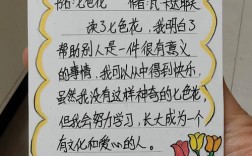 书名:七色花 作者:瓦·卡达耶夫
读了七色花,我明白了
帮助别人是一件很有意义
的事情,我可以从中得到快乐,
虽然我没有这样神奇的七色花,
但我会努力学习,长大成为一个
有文化和爱心的人。